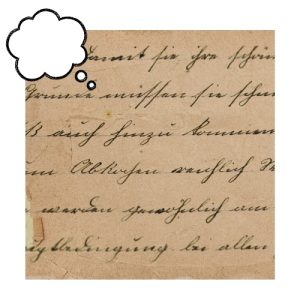 damit sie ihre schön
Grunde müssen sie schn
ß auch hinzu kommen
um Abkochen reichlich Se
werden gewöhnlich am
bedingung bei allen